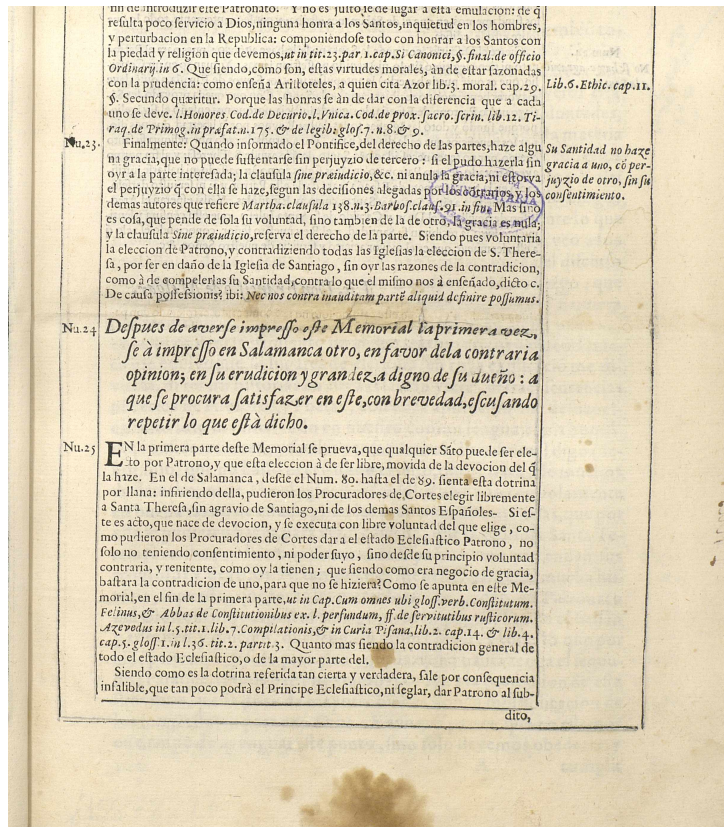 fin de introduzir este Patronato. Y no es justo, se de lugar a esta emulacion: de q̃
resulta poco servicio a Dios, ninguna honra a los Santos, inquietud en los hombres,
y perturbacion en la Republica: componiendose todo con honrar a los Santos con
la piedad y religion que devemos, ut in tit. 23. par 1. cap. Si Canonici, §. final. de officio
Ordinarij. in 6. Que siendo, como son, estas virtudes morales, àn de estar sazonadas
con la prudencia: como enseña Aristoteles, a quien cita Azor lib. 3. moral. cap. 29.
Lib. 6. Ethic. cap. 11.
§. Secundo quæritur. Porque las honras se àn de dar con la diferencia que a cada
uno se deve. l. Honores Cod. de Decurio. l. Vnica. Cod. de prox. sacro. scrin. lib. 12. Ti-
raq. de Primog. in præfat. n. 175. & de legib⁹ glos. 7. n. 8. & 9.
Nu. 23.
Finalmente: Quando informado el Pontifice, del derecho de las partes, haze algu
na gracia, que no puede sustentarse sin perjuyzio de tercero: si el pudo hazerla sin
oyr a la parte interesada; la clausula sine præiudicio, &c. ni anula la gracia, ni estorva
el perjuyzio q̃ con ella se haze, segun las decisiones alegadas por los cõtrarios, y los
demas autores que refiere Martha. clausula 138. n. 3. Barbos. claus. 91. in fin. Mas si no
es cosa, que pende de sola su voluntad, sino tambien de la de otro, la gracia es nula;
y la clausula Sine præiudicio, reserva el derecho de la parte. Siendo pues voluntaria
la eleccion de Patrono, y contradiziendo todas las Iglesias la eleccion de S. There-
sa, por ser en daño de la Iglesia de Santiago, sin oyr las razones de la contradicion,
como à de cõpelerlas su Santidad, contra lo que el mismo nos à enseñado, dicto c.
De causa possessionis? ibi: Nec nos contra inauditam partẽ aliquid definire possumus.
Su Santidad no haze
gracia a uno, cõ per-
juyzio de otro, sin su
consentimiento.
Nu. 24
Despues de averse impresso este Memorial la primera vez,
se à impresso en Salamanca otro, en favor de la contraria
opinion; en su erudicion y grandeza digno de su dueño: a
que se procura satisfazer en este, con brevedad, escusando
repetir lo que està dicho.
Nu. 25
EN la primera parte deste Memorial se prueva, que qualquier Sãto puede ser ele-
cto por Patrono, y que esta eleccion à de ser libre, movida de la devocion del q̃
la haze. En el de Salamanca, desde el Num. 80. hasta el de 89. sienta esta dotrina
por llana: infiriendo della, pudieron los Procuradores de Cortes elegir libremente
a Santa Theresa, sin agravio de Santiago, ni de los demas Santos Españoles- Si es-
te es acto, que nace de devocion, y se executa con libre voluntad del que elige, co-
mo pudieron los Procuradores de Cortes dar a el estado Eclesiastico Patrono, no
solo no teniendo consentimiento, ni poder suyo, sino desde su principio voluntad
contraria, y renitente, como oy la tienen; que siendo como era negocio de gracia,
bastara la contradicion de uno, para que no se hiziera? Como se apunta en este Me-
morial, en el fin de la primera parte, ut in Cap. Cum omnes ubi gloss. verb. Constitutum.
Felinus, & Abbas de Constitutionibus ex. l. perfundum, ff. de servitutibus rusticorum.
Azevodus in l. 5. tit. 1. lib. 7. Compilationis, & in Curia Pisana, lib. 2. cap. 14. & lib. 4.
cap. 5. gloss. 1. in l. 36. tit. 2. partit. 3. Quanto mas siendo la contradicion general de
todo el estado Eclesiastico, o de la mayor parte del.
Siendo como es la dotrina referida tan cierta y verdadera, sale por consequencia
infalible, que tan poco podrà el Principe Eclesiastico, ni seglar, dar Patrono al sub-
dito,